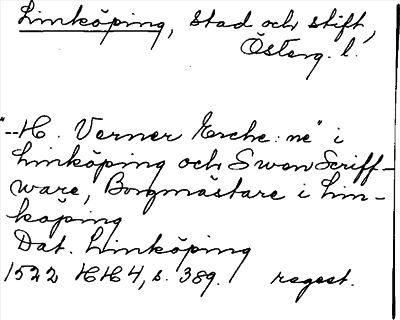 Linköping, stad och stift,
Österg. l.
"--H. Verner Erche:ne" i
Linköping och Swen Scriff-
ware, Borgmästare i Lin-
köping
Dat. Linköping
1522 HH 4, s. 389. regest.